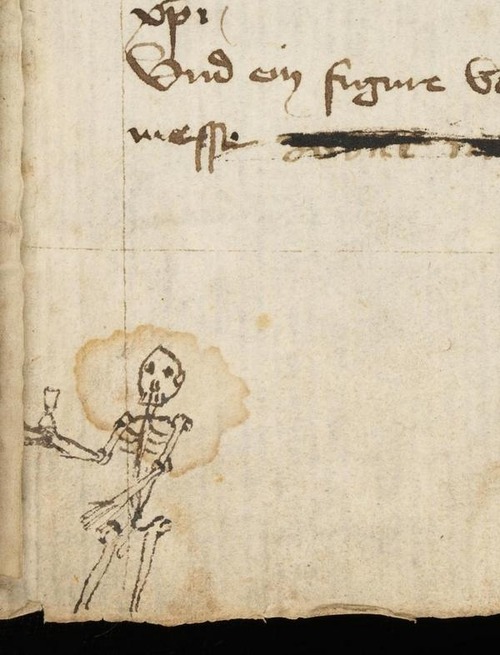 xpi
Vnd ein figure
messe